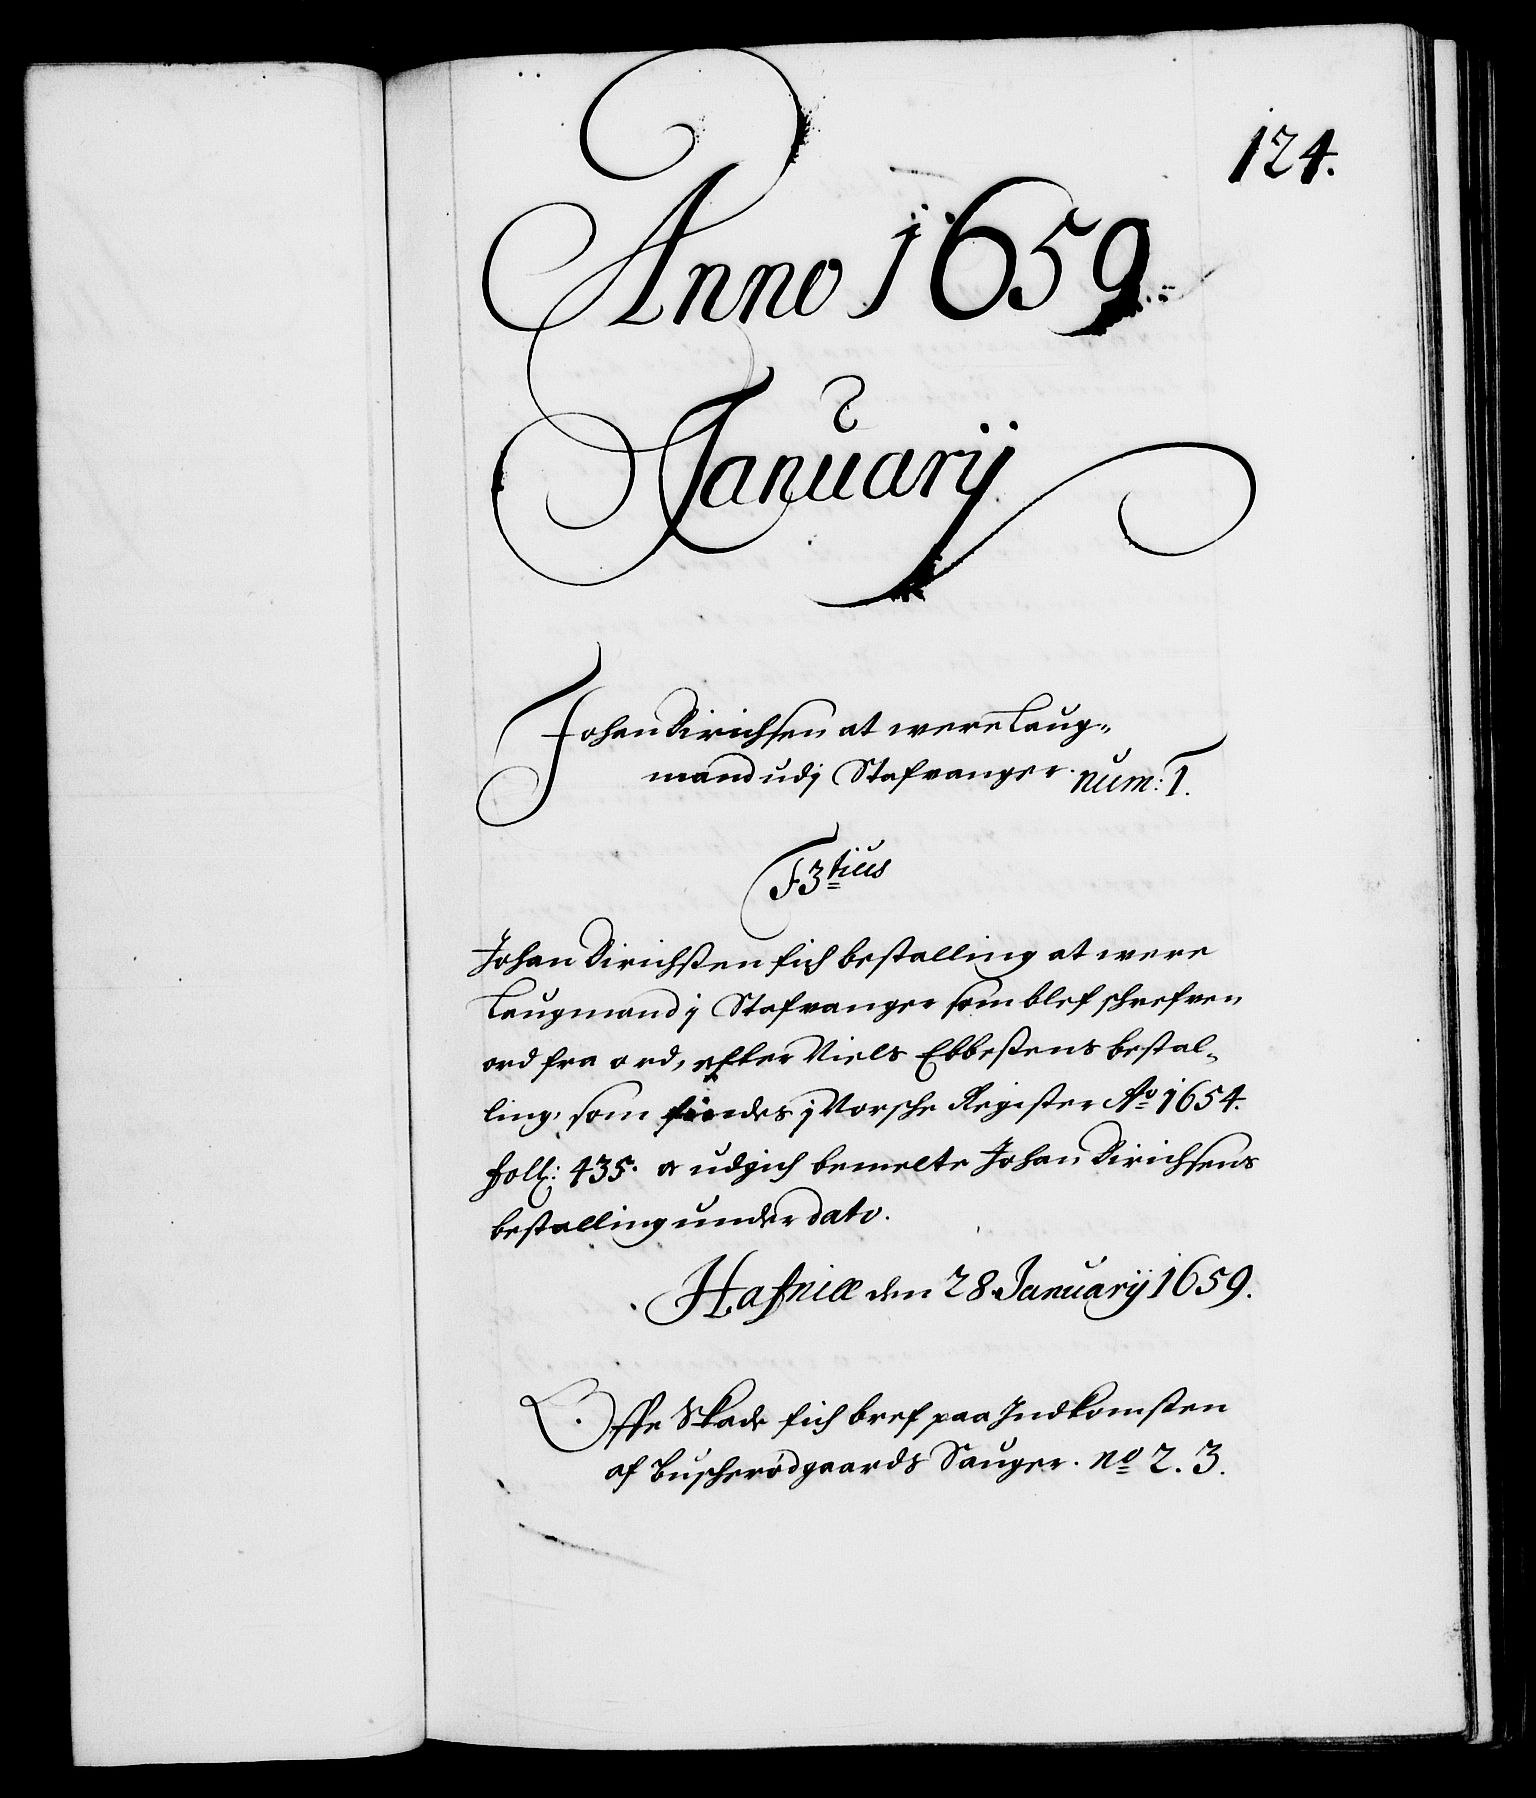 124.
Anno 1659
Januarij
Johan Dirichsen at were Laug-
mand udj Stafvanger. num: 1.
F3tius
Johan Dirichsen fich bestalling at were
Laugmand j Stafvanger som blef schrefven
ord fra ord, efter Niels Ebbesens bestal-
ling, som findes j Norsche Register Ao 1654.
foll: 435. och udgich bemelte Johan Dirichsens
bestalling under dato.
Hafniæ den 28 Januarij 1659.
Offe Skade fich bref paa Indkomsten
af Buscherødgaards Sauger. no 2. 3.